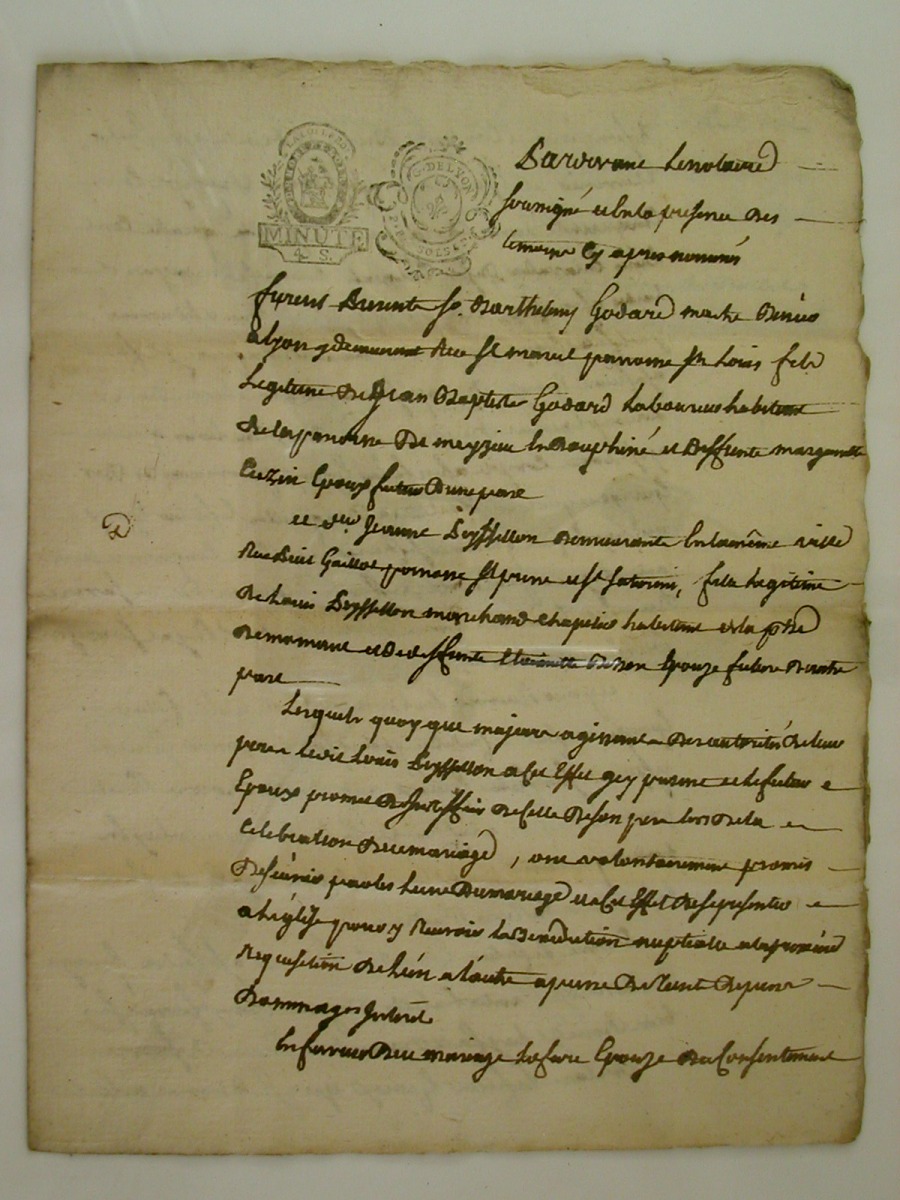 MINUT
4 S.
G. DE LYON
SOLS
Pardevant Le notaire
soussigné et en la presence des
temoins cy apres nommés
furent presents sr. Barthelemy Godard me
a Lyon y demeurant Rue St marcel paroisse St Louis fils
Legitime de Jean Baptiste Godard Laboureur habitant
de la paroisse de meyzieu en Dauphiné et deffunte marguerite
Cuzin Epoux futur d'une part
et dlle Jeanne Leyssellon demeurante en la même ville
Rue paroisse St pierre et St saturnin, fille Legitime
de Louis Leyssellon marchand habitant de la
de mornant et de deffunte Epouze future d'autre
part
Lesquels quoy que majeurs agissant des autorités de leur
pere Ledit Louis Leyssellon a cet Effet icy present et le futur
Epoux promet de justiffier de celle de son pere lors de la
celebration du mariage, ont volontairement promis
de s'unir par les liens du mariage et a cet Effet de se presenter
a L'églize pour y Recevoir la Benediction nuptialle a la premiere
Requisition de L'un a L'autre a peine de tous depens
Dommages Interets
En faveur du mariage La future Epouze du Consentement